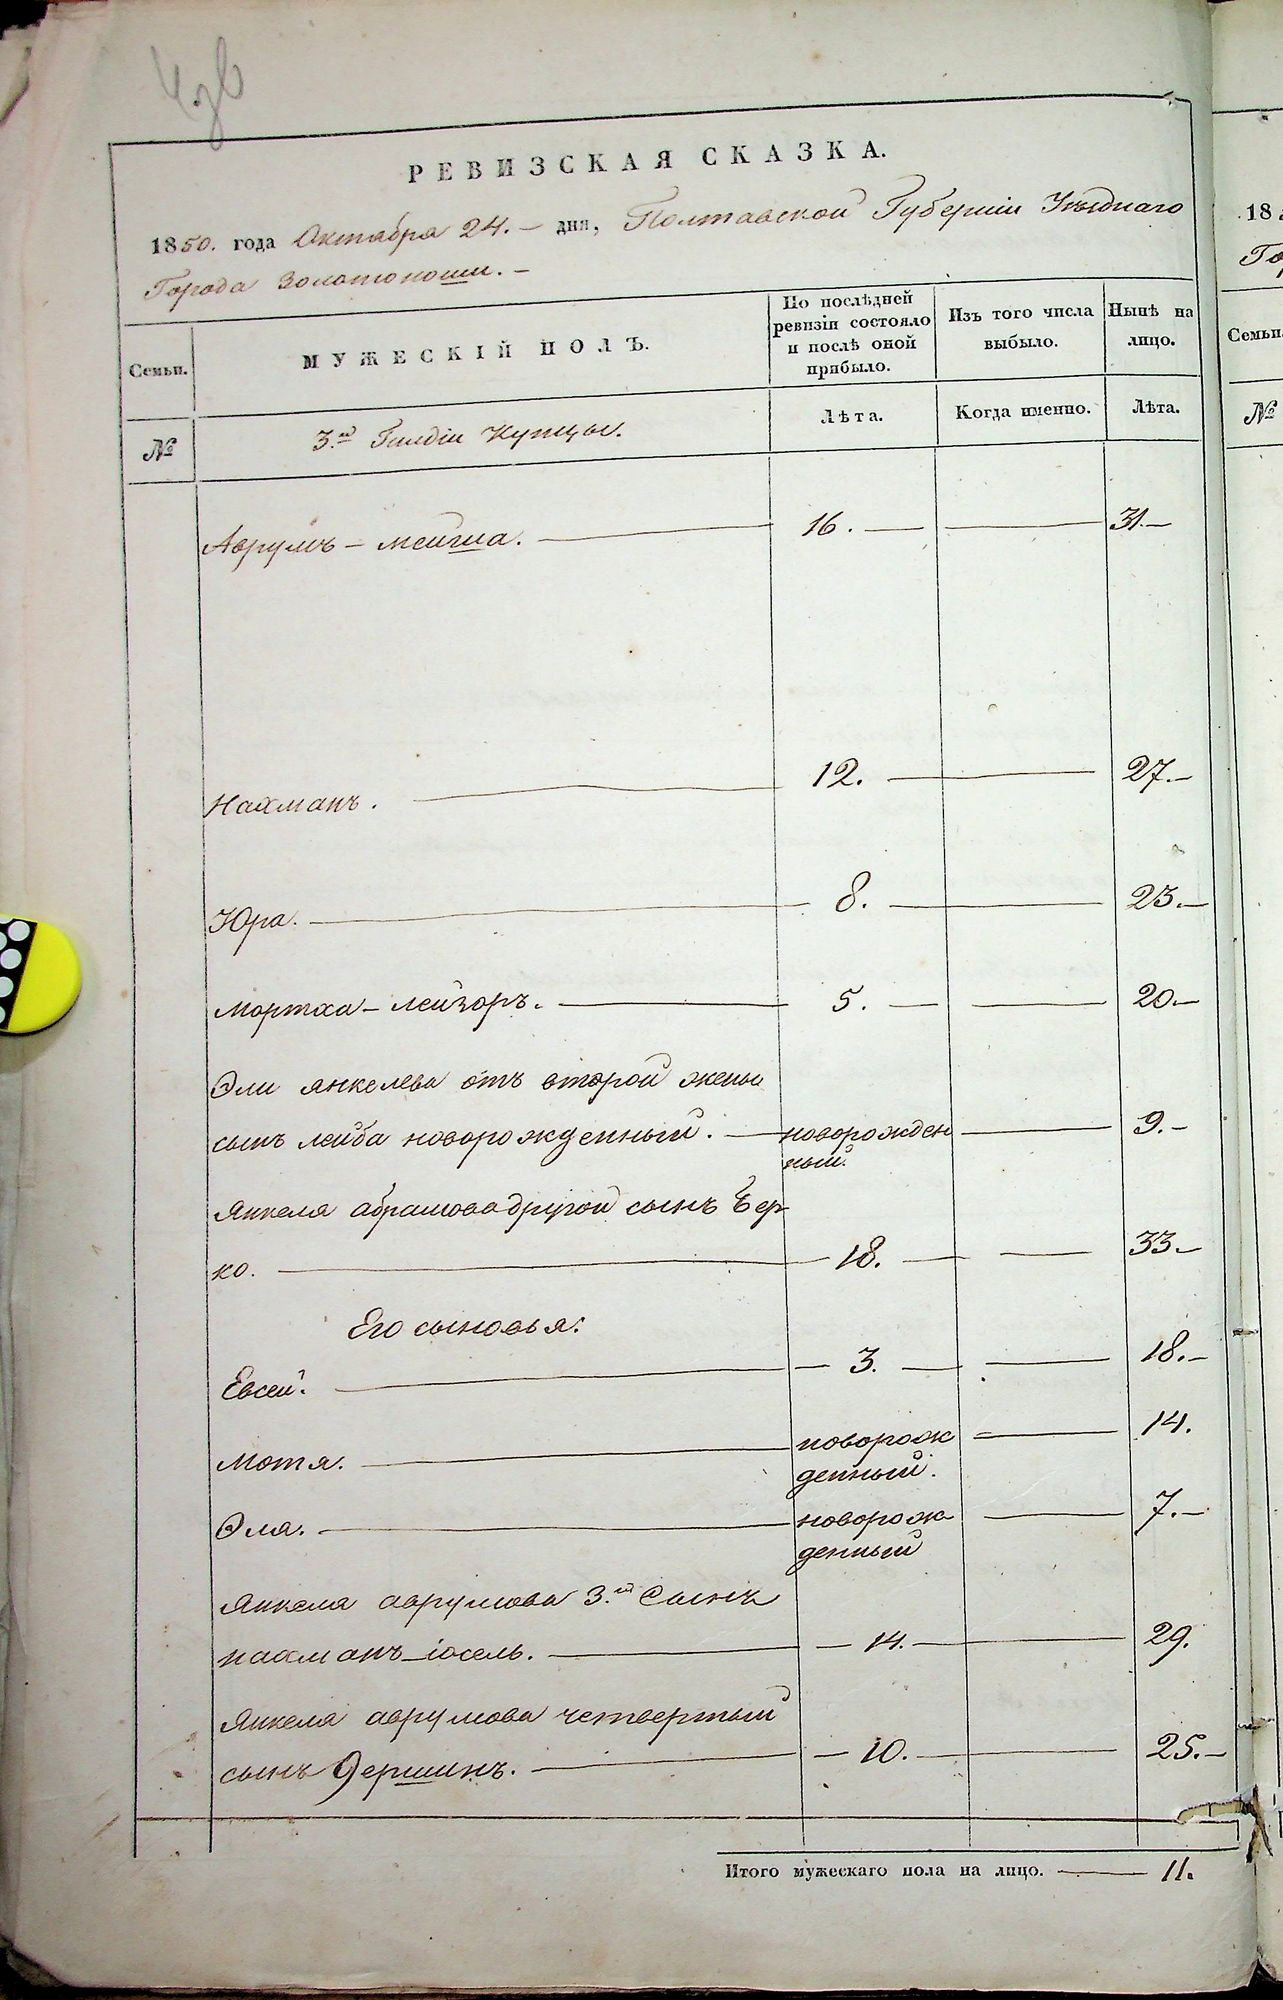 РЕВИЗСКАЯ СКАЗКА.
1850. года Октября 24. – дня, Полтавской Губерніи Уѣзднаго
Города Золотоноши. –
Семьи.
МУЖЕСКІЙ ПОЛЪ.
По послѣдней
ревизіи состояло
и послѣ оной
прибыло.
Изъ того числа
выбыло.
Нынѣ на
лицо.
№
3.й Гилдіи Купцы.
Лѣта.
Когда именно.
Лѣта.
Аврумъ – мейша. 16. 31.
Нахманъ. 12. 27.
Юра. 8. 23.
Мортха – лейзоръ. 5. 20.
Эли янкелева отъ второй жены
сынъ лейба новорожденный. новорожден 9.
ный.
Янкеля абрамова другой сынъ Бер
ко. 18. 33.
Его сыновья:
Евсей. 3. 18.
Мотя. новорож 14.
денный.
Эля. новорож 7.
денный
Янкеля аврумова 3.й Сынъ
нахманъ – іосель. 14. 29.
Янкеля аврумова четвертый
сынъ Гершинъ. 10. 25.
Итого мужескаго пола на лицо. 11.
18
Го
Семьи.
№